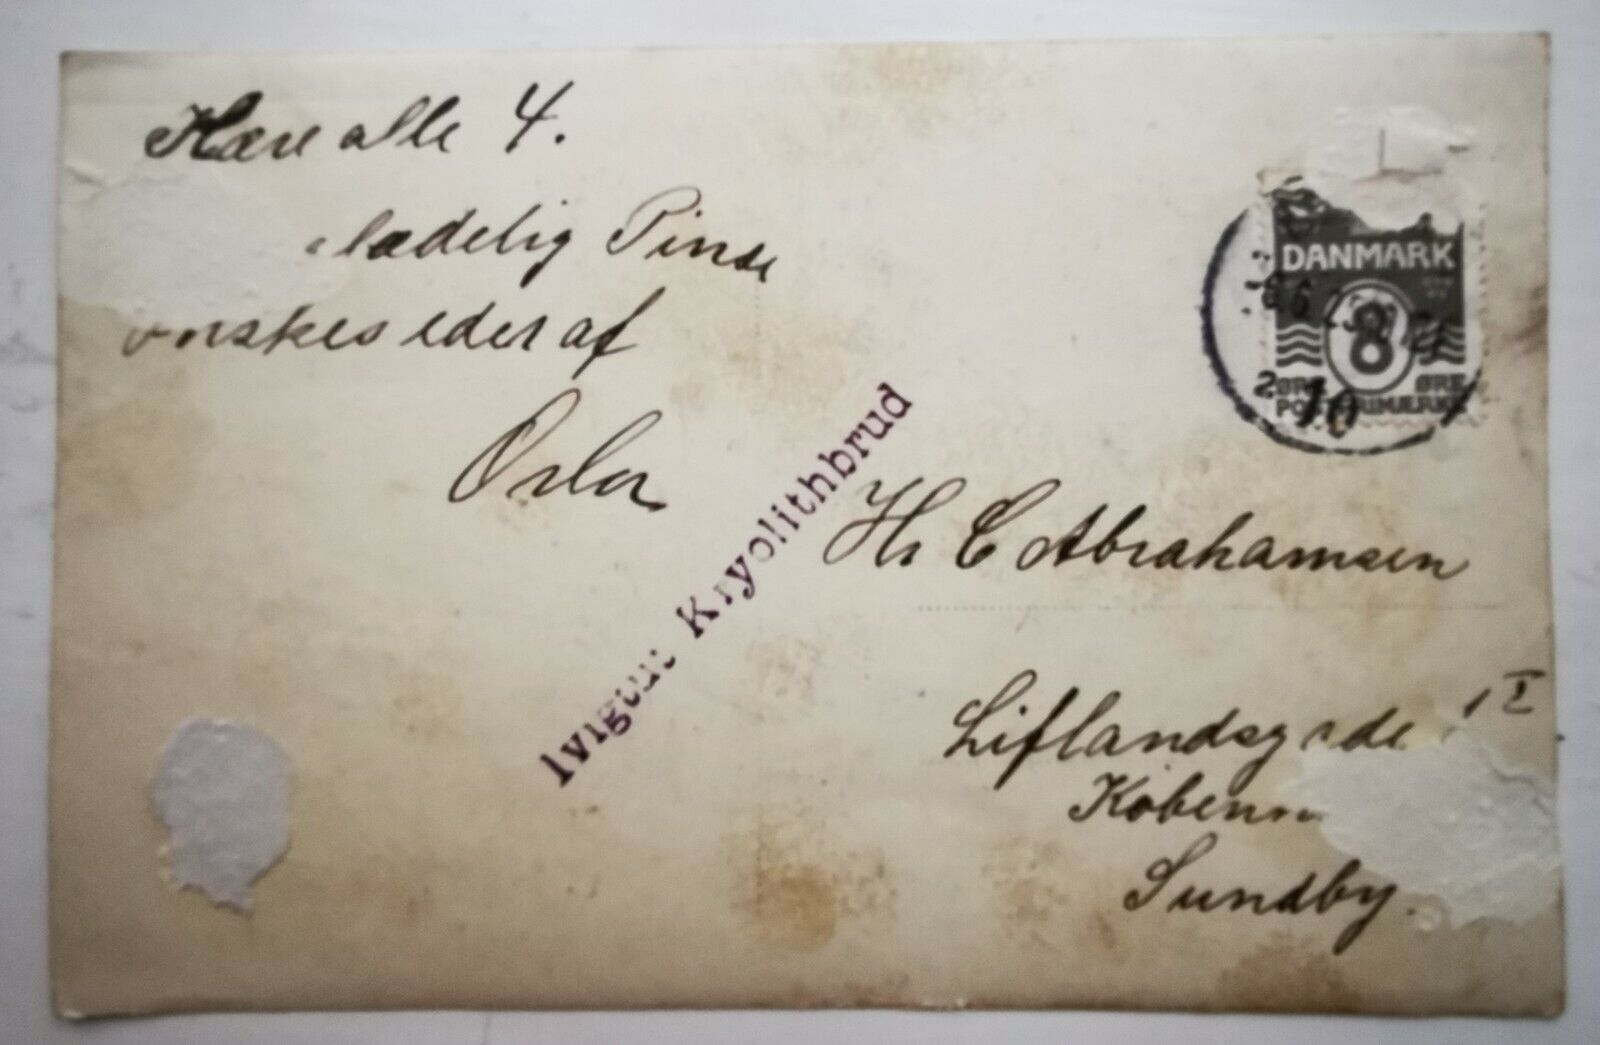 Kære alle 4.
lædelig Pinse
ønskes eder af
Ivigtut Kryolithbrud
DANMARK
8
ØRE
POSTFRIMÆRKE
Hr C Abrahamsen
Liflandsgade I
Københ
Sundby.